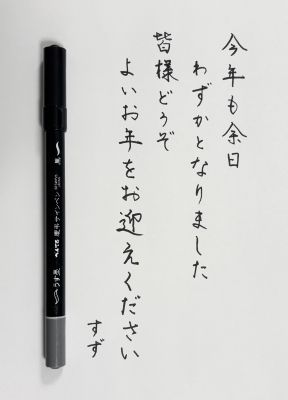 今年も余日
わずかとなりました
皆様どうぞ
よいお年をお迎えください
すず
黒
うす墨